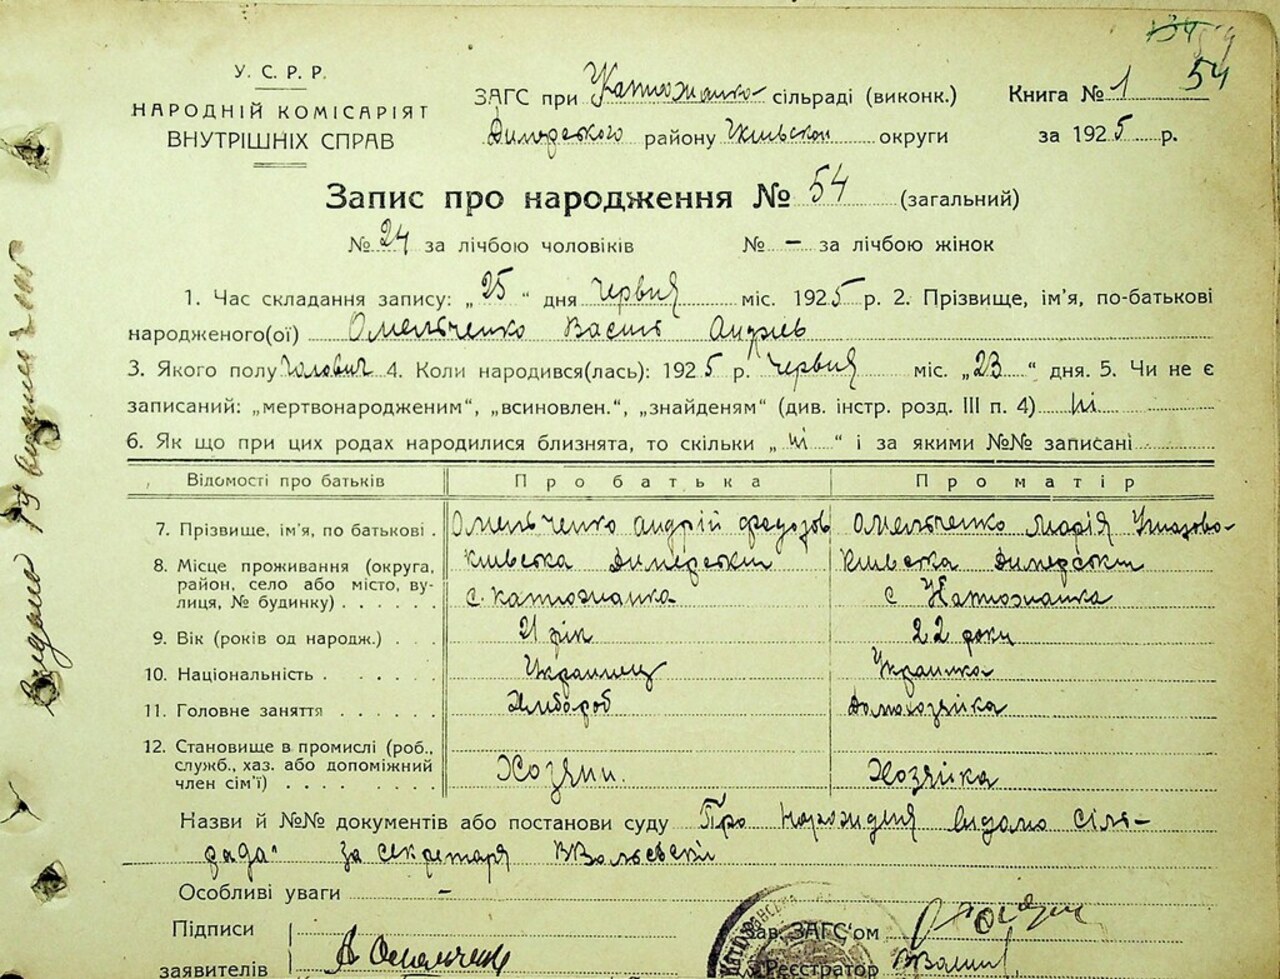 134 59
54
У. С. Р. Р.
НАРОДНІЙ КОМІСАРІЯТ
ВНУТРІШНІХ СПРАВ
ЗАГС при Катюжанко сільраді (виконк.)
Димерського району Київської округи
Книга № 1
за 1925 р.
Запис про народження № 54 (загальний)
№ 24 за лічбою чоловіків № – за лічбою жінок
1. Час складання запису: „25“ дня червня міс. 1925 р. 2. Прізвище, ім'я, по-батькові
народженого(ої) Омельченко Василь Андріев
3. Якого полу чоловіч 4. Коли народився(лась): 1925 р. червня міс. „23“ дня. 5. Чи не є
записаний: „мертвонародженим“, „всиновлен.“, „знайденям“ (див. інстр. розд. III п. 4) ні
6. Як що при цих родах народилися близнята, то скільки „ні“ і за якими №№ записані
Відомості про батьків Про батька Про матір
7. Прізвище, ім'я, по батькові . Омельченко Андрій Омельченко Марія
8. Місце проживання (округа, Київська Димерський Київська Димерський
район, село або місто, ву-
лиця, № будинку) . . . . . . с. Катюжанка с Катюжанка
9. Вік (років од народж.) . . . 21 рік 22 роки
10. Національність . . . . . . Украинец Украинка
11. Головне заняття . . . . . . Хлибороб Домохозяйка
12. Становище в промислі (роб.,
служб., хаз. або допоміжний
член сім'ї) . . . . . . . . . Хозяин. Хозяйка
Назви й №№ документів або постанови суду Про народженя видано сіль-
рада за секретаря
Особливі уваги –
Підписи
заявителів А Омельченко
Зав. ЗАГС'ом
Реєстратор
Видано